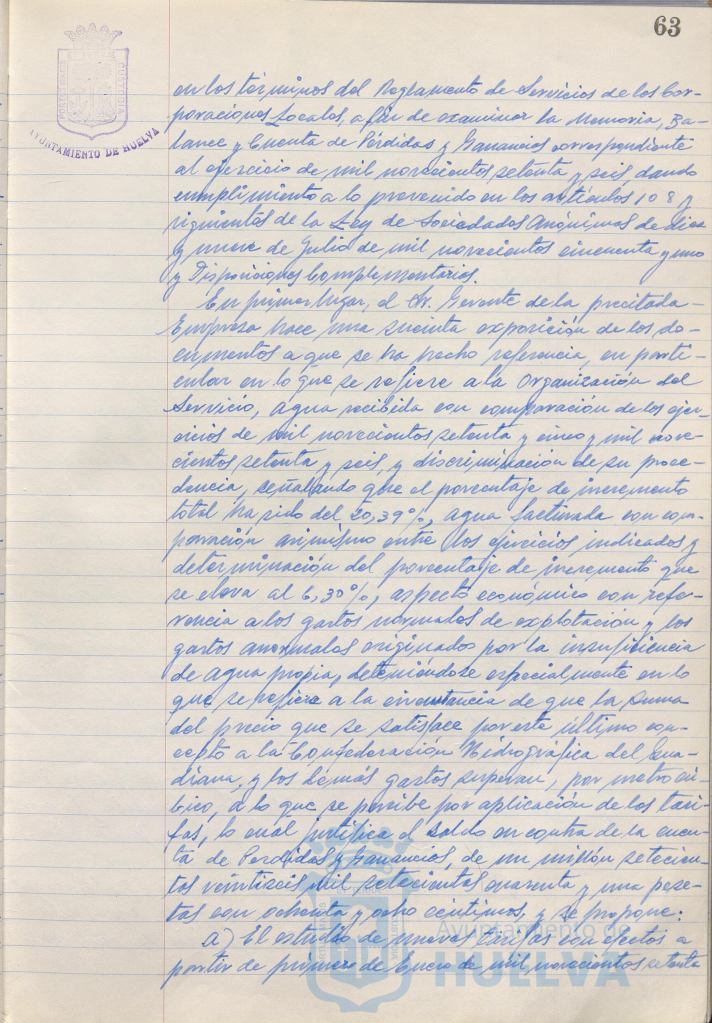 63
AYUNTAMIENTO DE HUELVA
en los términos del Reglamento de Servicios de las Cor-
poraciones Locales, a fin de examinar la Memoria, Ba-
lance y Cuenta de Pérdidas y Ganancias correspondiente
al ejercicio de mil novecientos setenta y seis, dando
cumplimiento a lo prevenido en los artículos 108 y
siguientes de la Ley de Sociedades Anónimas de diez
y nueve de Julio de mil novecientos cincuenta y uno
y Disposiciones Complementarias.
En primer lugar, el Sr. Gerente de la precitada
Empresa hace una sucinta exposición de los do-
cumentos a que se ha hecho referencia, en parti-
cular en lo que se refiere a la Organización del
Servicio, agua recibida con comparación de los ejer-
cicios de mil novecientos setenta y cinco y mil nove-
cientos setenta y seis, y discriminación de su proce-
dencia, señalando que el porcentaje de incremento
total ha sido del 20,39%, agua facturada con com-
paración asimismo entre los ejercicios indicados y
determinación del porcentaje de incremento que
se eleva al 6,30%, aspecto económico con refe-
rencia a los gastos normales de explotación y los
gastos anormales originados por la insuficiencia
de agua propia, deteniéndose especialmente en lo
que se refiere a la circustancia de que la suma
del precio que se satisface por este último con-
cepto a la Confederación Hidrográfica del Gua-
diana, y los demás gastos superan, por metro cú-
bico, a lo que se percibe por aplicación de las tari-
fas, lo cual justifica el saldo en contra de la cuen-
ta de Perdidas y Ganancias, de un millón setecien-
tas veintiseis mil setecientas cuarenta y una pese-
tas con ochenta y ocho céntimos, y se propone:
a) El estudio de nuevas tarifas con efectos a
partir de primero de Enero de mil novecientos setenta
Ayuntamiento de
HUELVA